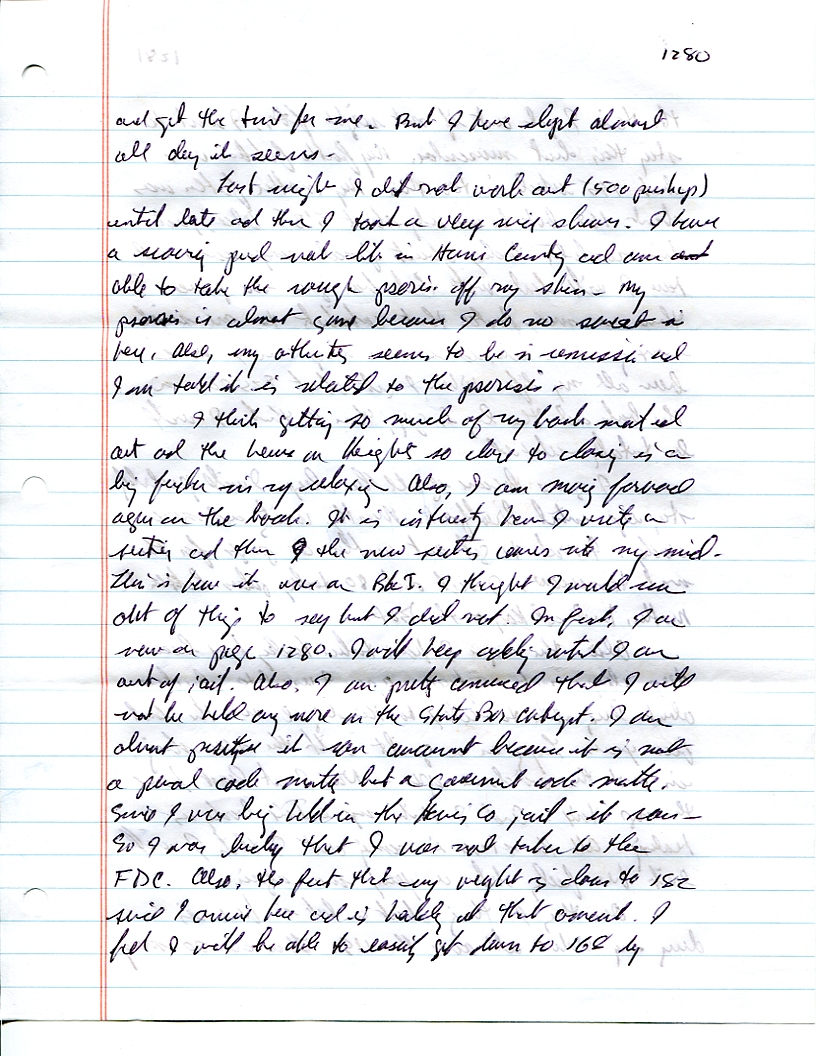 1280
and get the time for me. But I have slept almost
all day it seems.
Last night I did not work out (500 pushups)
until late and then I took a very nice shower. I have
a scouring pad not like in Harris County and am
able to take the rough psoriasis off my skin - my
psoriasis is almost gone because I do no sweat in
here. Also, my arthritis seems to be in remission and
I am told it is related to the psoriasis.
I think getting so much of my book mailed
out and the house on Heights so close to closing is a
big factor in my relaxing. Also, I am moving forward
again on the book. It is interesting how I write a
section and then the new section comes into my mind.
This is how it was on Book I. I thought I would run
out of things to say but I did not. In fact, I am
now on page 1280. I will keep adding until I am
out of jail. Also, I am pretty convinced that I will
not be held any more on the State Bar contempt. I am
almost positive it ran concurrent because it is not
a penal code matter but a government code matter.
Since I was being held in the Harris Co jail - it ran -
So I was lucky that I was not taken to the
FDC. Also, the fact that my weight is down to 182
since I arrived here and is holding at that amount. I
feel I will be able to easily get down to 168 by